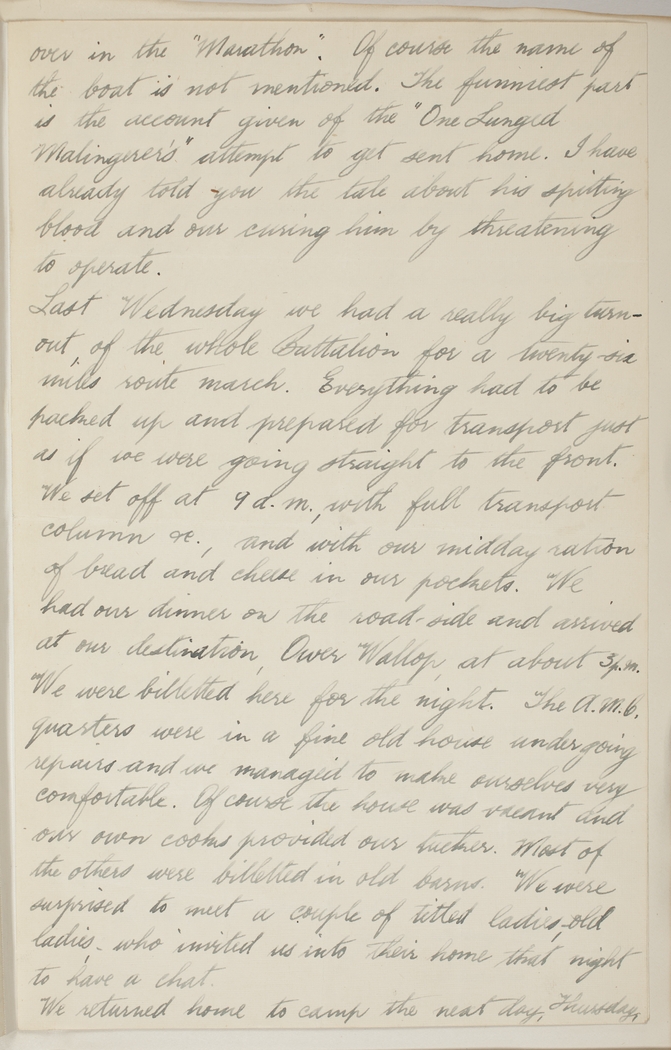 over in the "Marathon". Of course the name of
the boat is not mentioned. The funniest part
is the account given of the "One Lunged
Malingerer's" attempt to get sent home. I have
already told you the tale about his spitting
blood and our curing him by threatening
to operate.
Last Wednesday we had a really big turn-
out, of the whole Battalion for a twenty-six
miles route march. Everything had to be
packed up and prepared for transport just
as if we were going straight to the front.
We set off at 9 a.m., with full transport
column &c., and with our midday ration
of bread and cheese in our pockets. We
had our dinner on the road-side and arrived
at our destination, Over Wallop, at about 3 p.m.
We were billetted here for the night. The A.M.C.
quarters were in a fine old house undergoing
repairs and we managed to make ourselves very
comfortable. Of course the house was vacant and
our own cooks provided our tucker. Most of
the others were billetted in old barns. We were
surprised to meet a couple of titled ladies, old
ladies - who invited us into their home that night
to have a chat.
We returned home to camp the next day, Thursday,